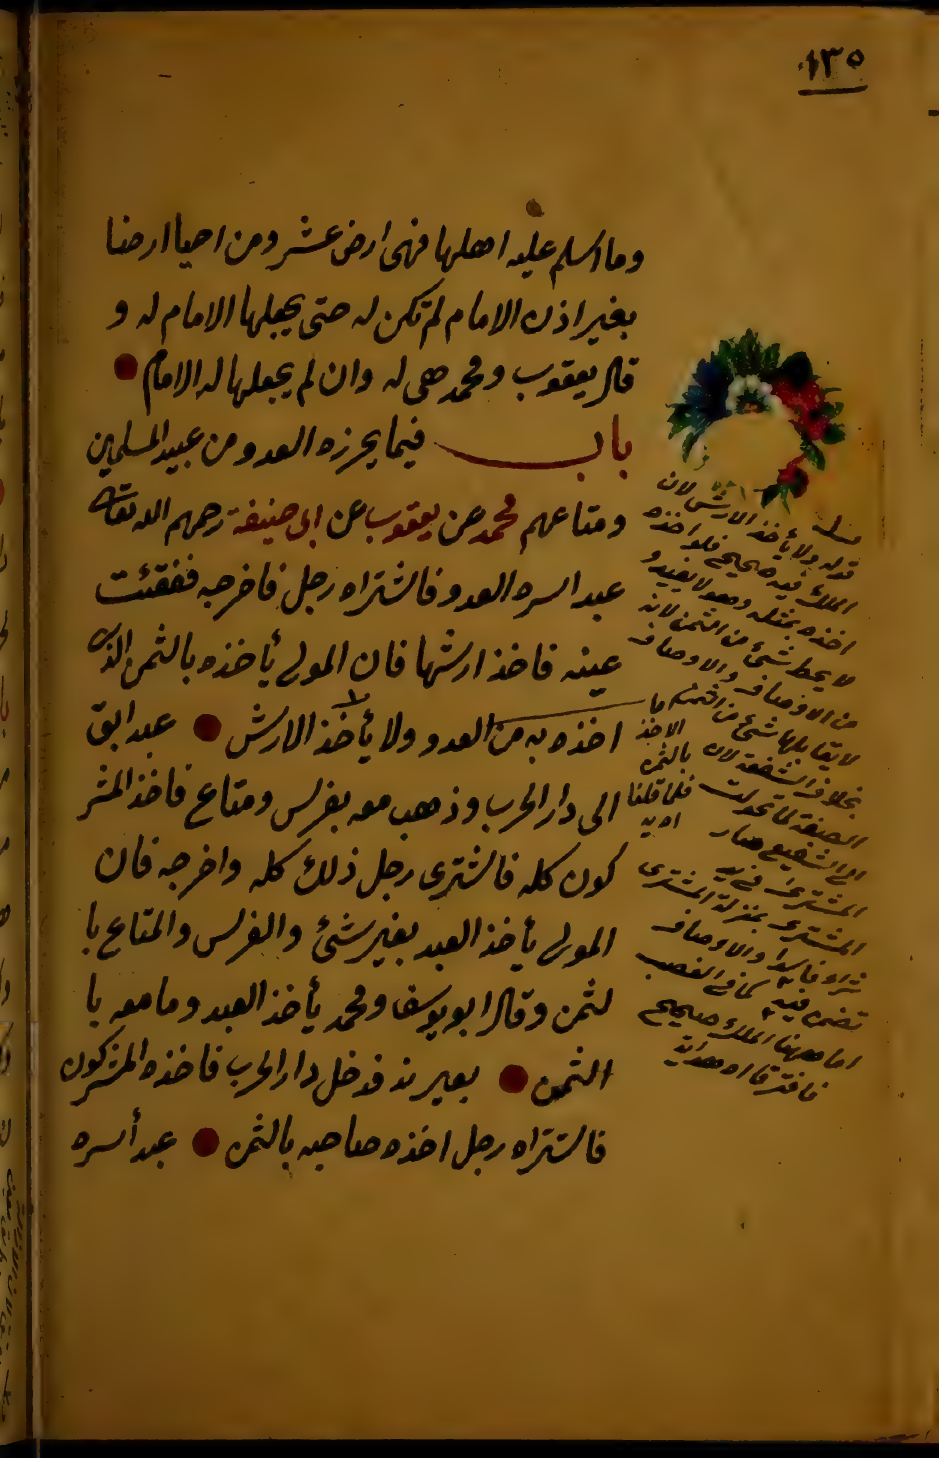 ١٣٥
وما اسلم عليه اهلها فهى ارض عشر ومن احيا ارضا
بغير اذن الامام لم تكن له حتى يجعلها الامام له و
قال يعقوب ومحمد هى له وان لم يجعلها له الامام
باب فيما يحرزه العدو من عبيد المسلمين
ومتاعهم محمد عن يعقوب عن ابى حنيفة رحمهم الله تعالى
عبد اسره العدو فاشتراه رجل فاخرجه ففقئت
عينه فاخذ ارشها فان المولى يأخذه بالثمن الذى
اخذه به من العدو ولا يأخذ الارش عبد ابق
الى دار الحرب وذهب معه بفرس ومتاع فاخذ المشر
كون كله فاشترى رجل ذلك كله واخرجه فان
المولى يأخذ العبد بغير شئ والفرس والمتاع با
لثمن وقال ابو يوسف ومحمد يأخذ العبد وما معه با
الثمن بعير ند فدخل دار الحرب فاخذه المشركون
فاشتراه رجل اخذه صاحبه بالثمن عبد أسره
قوله ولا يأخذ الارش لان
الملك فيه صحيح فلو اخذه
اخذه بمثله وهو لا يفيد و
لا يحط شئ من الثمن لانه
من الاوصاف والاوصاف
لا يقابلها شئ من الثمن
بخلاف الشفعة لان
الصفقة لما تحولت
الى الشفيع صار
المشترى فى يد
المشترى بمنزلة المشترى
شراء فاسدا والاوصاف
تضمن فيه كما فى الغصب
اما ههنا الملك صحيح
فافترقا اه هداية
ما
الاخذ
بالثمن
فلما قلنا